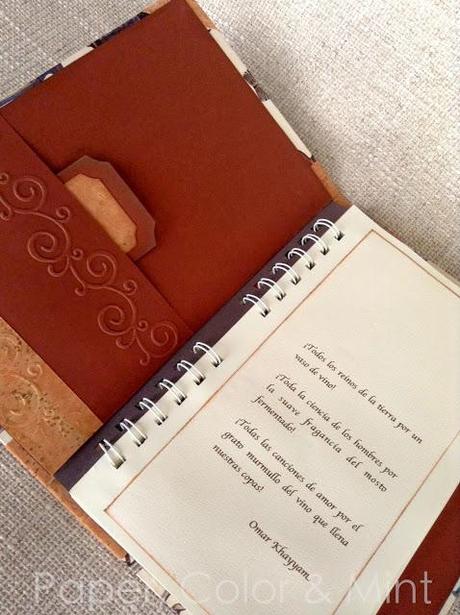 ¡Todos los reinos de la tierra por un
vaso de vino!
¡Toda la ciencia de los hombres por
la suave fragancia del mosto
fermentado!
¡Todas las canciones de amor por el
grato murmullo del vino que llena
nuestras copas!
Omar Khayyam
Paper, Color & Mint